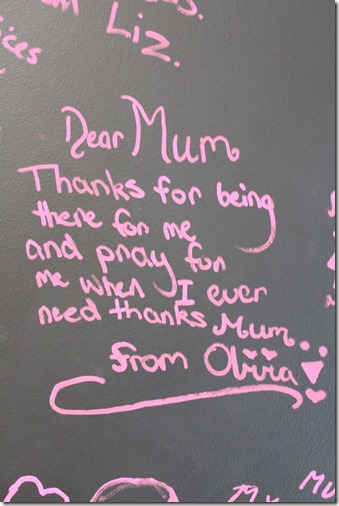 Liz.
Dear Mum
Thanks for being
there for me
and pray for
me when I ever
need thanks Mum.
from Olivia